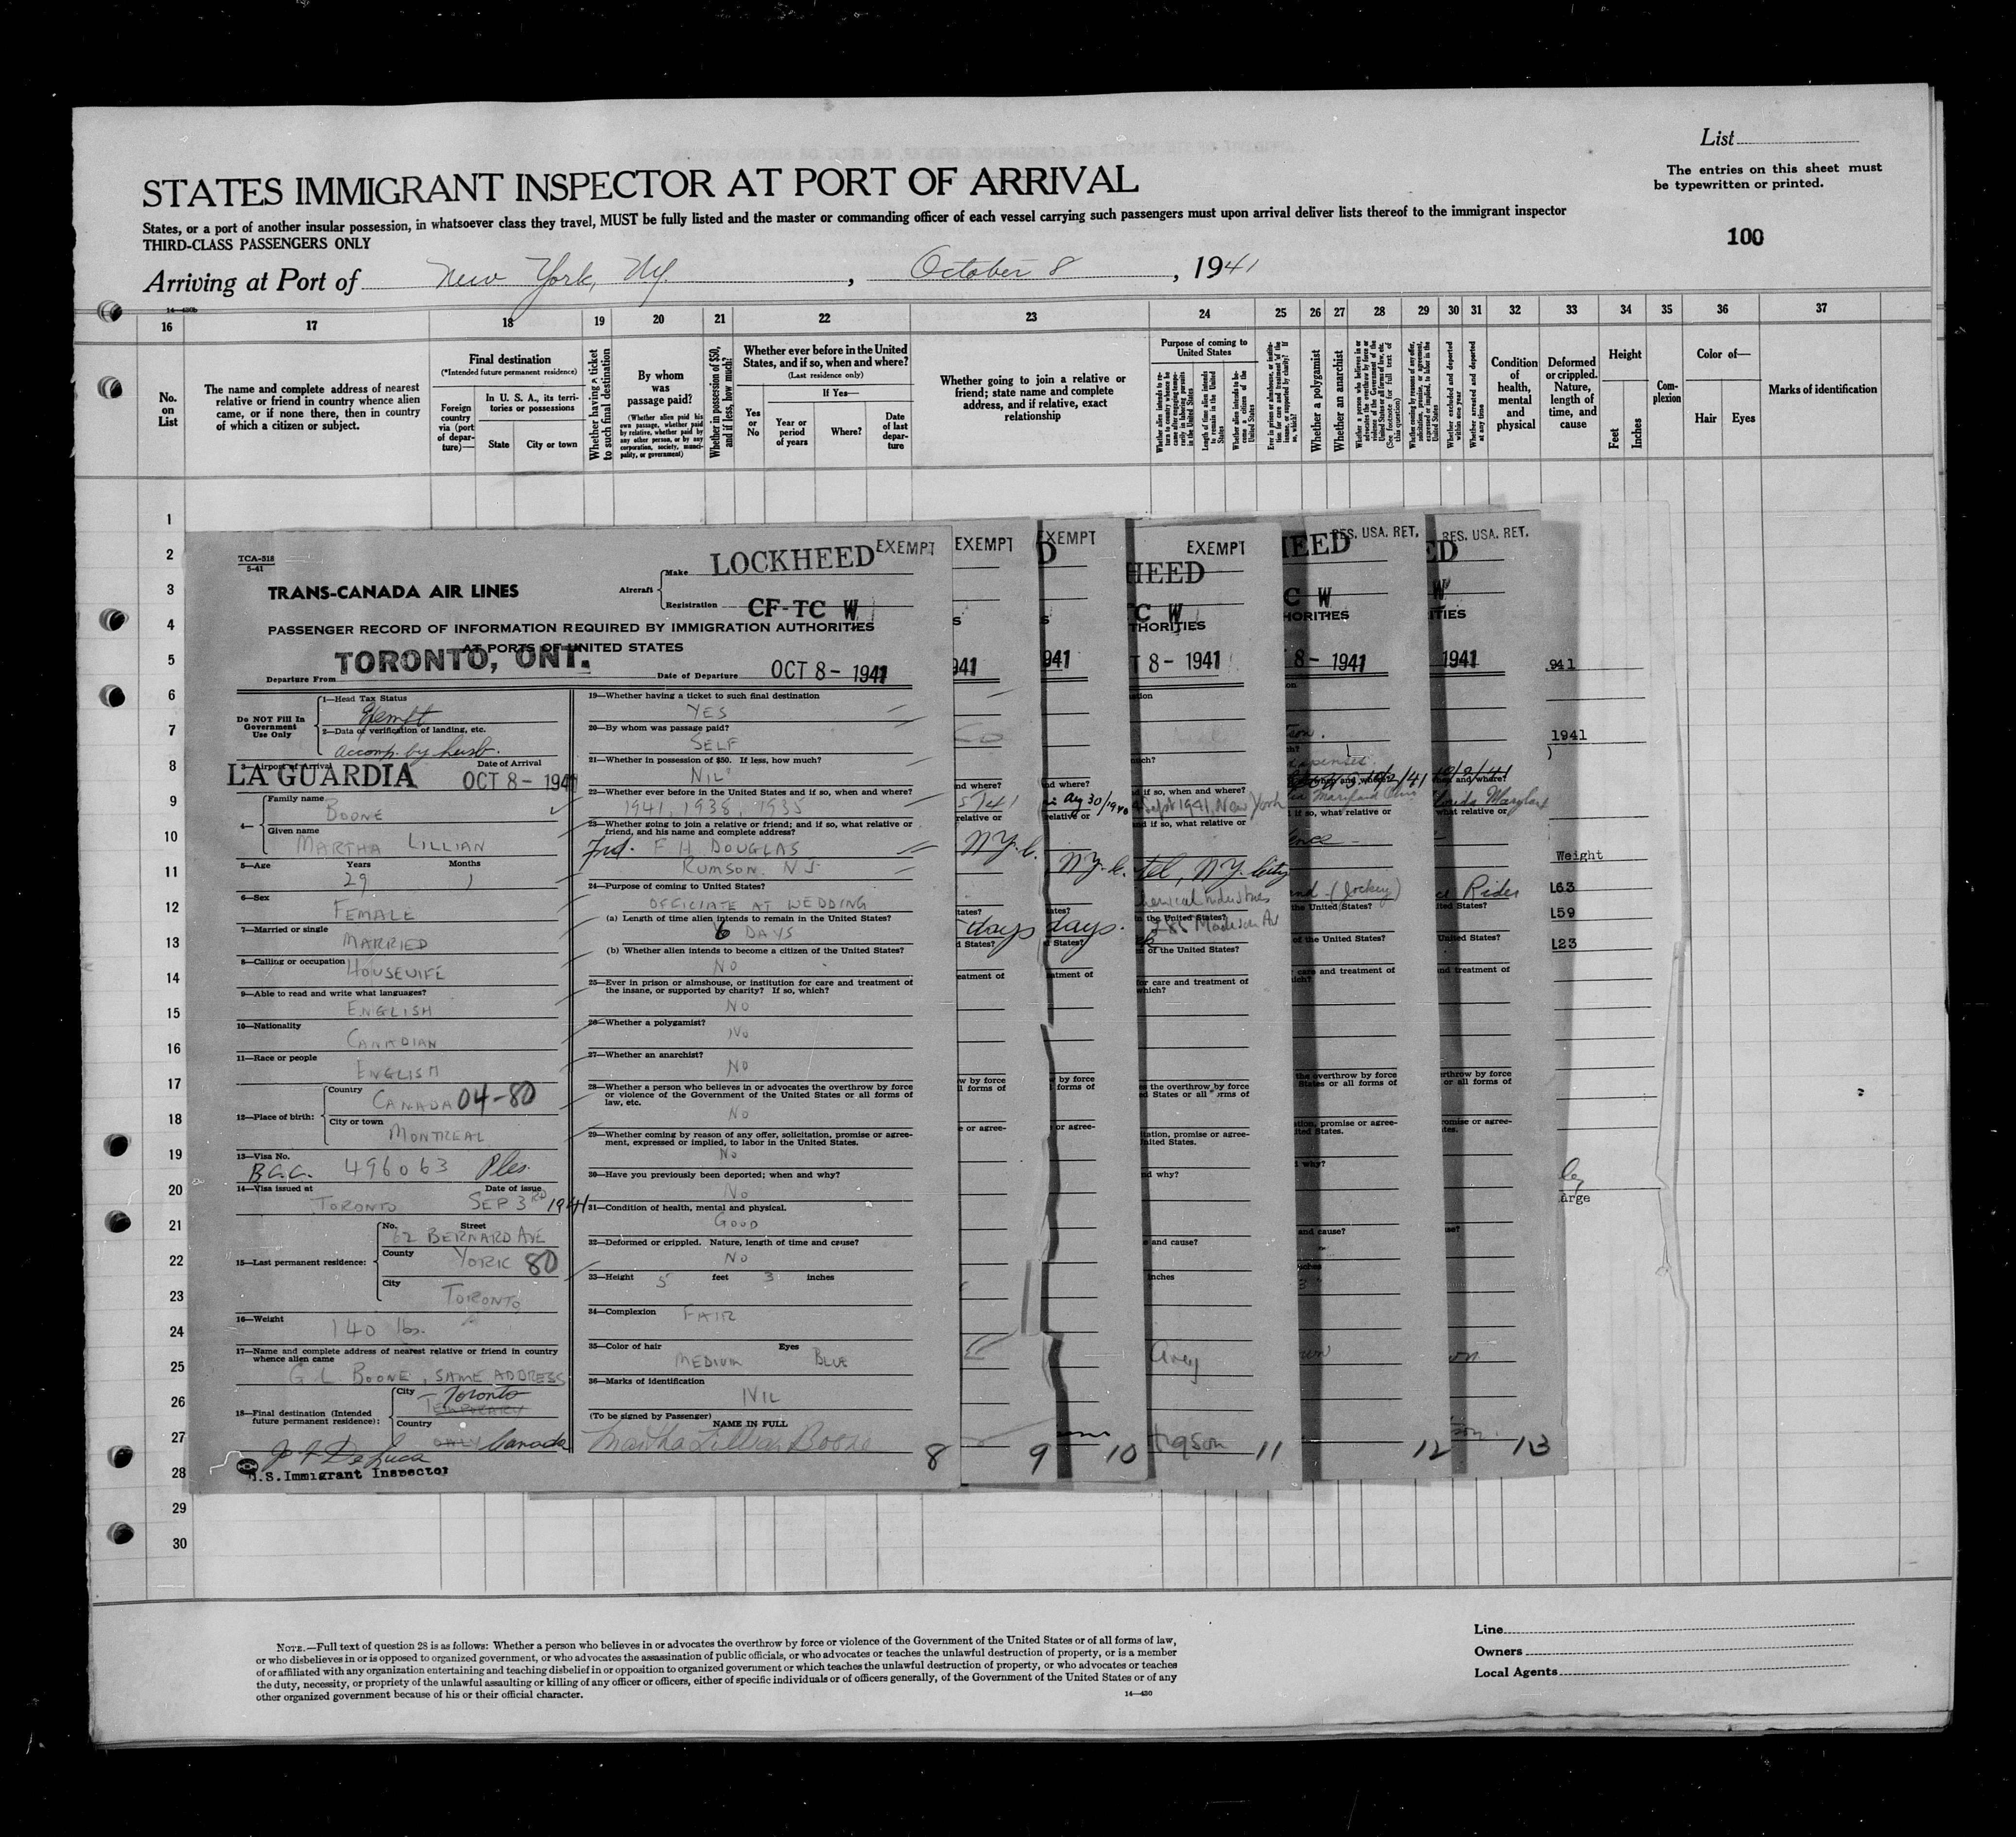 List
The entries on this sheet must
be typewritten or printed.
STATES IMMIGRANT INSPECTOR AT PORT OF ARRIVAL
States, or a port of another insular possession, in whatsoever class they travel, MUST be fully listed and the master or commanding officer of each vessel carrying such passengers must upon arrival deliver lists thereof to the immigrant inspector
THIRD-CLASS PASSENGERS ONLY
100
Arriving at Port of New York, NY. , October 8 , 1941
16 17 18 19 20 21 22 23 24 25 26 27 28 29 30 31 32 33 34 35 36 37
No. on List
The name and complete address of nearest relative or friend in country whence alien came, or if none there, then in country of which a citizen or subject.
Final destination
(*Intended future permanent residence)
Foreign country via (port of departure)—
In U. S. A., its territories or possessions
State
City or town
Whether having a ticket to such final destination
By whom was passage paid?
(Whether alien paid his own passage, whether paid by relative, whether paid by any other person, or by any corporation, society, municipality, or government)
Whether in possession of $50, and if less, how much?
Whether ever before in the United States, and if so, when and where?
(Last residence only)
Yes or No
If Yes—
Year or period of years
Where?
Date of last departure
Whether going to join a relative or friend; state name and complete address, and if relative, exact relationship
Purpose of coming to United States
Whether alien intends to become a citizen of the United States
Whether a polygamist
Whether an anarchist
Whether excluded and deported within one year
Whether arrested and deported at any time
Condition of health, mental and physical
Deformed or crippled. Nature, length of time, and cause
Height
Feet
Inches
Complexion
Color of—
Hair
Eyes
Marks of identification
1
2
3
4
5
6
7
8
9
10
11
12
13
14
15
16
17
18
19
20
21
22
23
24
25
26
27
28
29
30
TCA-518
5-41
TRANS-CANADA AIR LINES
Aircraft
Make LOCKHEED
EXEMPT
Registration CF-TC W
PASSENGER RECORD OF INFORMATION REQUIRED BY IMMIGRATION AUTHORITIES
AT PORTS OF UNITED STATES
Departure From TORONTO, ONT.
Date of Departure OCT 8 - 1941
Do NOT Fill In
Government
Use Only
1—Head Tax Status
Exempt
2—Data of verification of landing, etc.
accomp. by husb.
3—Airport of Arrival Date of Arrival
LA GUARDIA OCT 8 - 1941
4—
Family name
BOONE
Given name
MARTHA LILLIAN
5—Age Years Months
29 1
6—Sex
FEMALE
7—Married or single
MARRIED
8—Calling or occupation
HOUSEWIFE
9—Able to read and write what languages?
ENGLISH
10—Nationality
CANADIAN
11—Race or people
ENGLISH
12—Place of birth:
Country
CANADA 04-80
City or town
MONTREAL
13—Visa No.
B.C.C. 496063
14—Visa issued at Date of issue
TORONTO SEP 3RD 1941
15—Last permanent residence:
No. Street
62 BERNARD AVE
County
YORK 80
City
TORONTO
16—Weight
140 lbs.
17—Name and complete address of nearest relative or friend in country
whence alien came
G. L. BOONE, SAME ADDRESS
18—Final destination (Intended
future permanent residence):
City
Toronto
TEMPORARY
Country
ONLY Canada
U.S. Immigrant Inspector
19—Whether having a ticket to such final destination
YES
20—By whom was passage paid?
SELF
21—Whether in possession of $50. If less, how much?
NIL
22—Whether ever before in the United States and if so, when and where?
1941, 1938, 1935
23—Whether going to join a relative or friend; and if so, what relative or
friend, and his name and complete address?
Frd. F H DOUGLAS
RUMSON. N J
24—Purpose of coming to United States?
OFFICIATE AT WEDDING
(a) Length of time alien intends to remain in the United States?
6 DAYS
(b) Whether alien intends to become a citizen of the United States?
NO
25—Ever in prison or almshouse, or institution for care and treatment of
the insane, or supported by charity? If so, which?
NO
26—Whether a polygamist?
NO
27—Whether an anarchist?
NO
28—Whether a person who believes in or advocates the overthrow by force
or violence of the Government of the United States or all forms of
law, etc.
NO
29—Whether coming by reason of any offer, solicitation, promise or agree-
ment, expressed or implied, to labor in the United States.
NO
30—Have you previously been deported; when and why?
NO
31—Condition of health, mental and physical.
GOOD
32—Deformed or crippled. Nature, length of time and cause?
NO
33—Height 5 feet 3 inches
34—Complexion
FAIR
35—Color of hair Eyes
MEDIUM BLUE
36—Marks of identification
NIL
(To be signed by Passenger)
NAME IN FULL
Martha Lillian Boone
8
EXEMPT
941
N.Y.C.
days
9
EXEMPT
941
Aug 30/1940
N.Y.C.
days.
10
EXEMPT
HEED
C W
THORITIES
T 8 - 1941
Sept 1941, New York
tel, N.Y. City
Grey
11
RES. USA. RET.
HEED
C W
HORITIES
8 - 1941
(Jockey)
12
RES. USA. RET.
ED
W
ITIES
1941
Rider
13
941
1941
Weight
163
159
123
arge
NOTE.—Full text of question 28 is as follows: Whether a person who believes in or advocates the overthrow by force or violence of the Government of the United States or of all forms of law,
or who disbelieves in or is opposed to organized government, or who advocates the assassination of public officials, or who advocates or teaches the unlawful destruction of property, or is a member
of or affiliated with any organization entertaining and teaching disbelief in or opposition to organized government or which teaches the unlawful destruction of property, or who advocates or teaches
the duty, necessity, or propriety of the unlawful assaulting or killing of any officer or officers, either of specific individuals or of officers generally, of the Government of the United States or of any
other organized government because of his or their official character.
14—430
Line
Owners
Local Agents